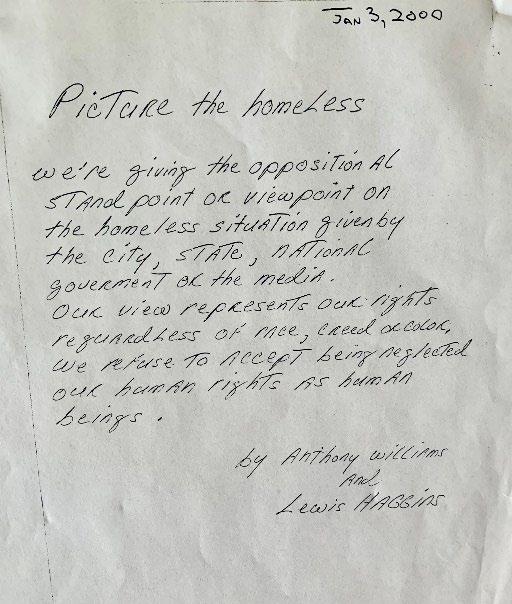 Jan 3, 2000
Picture the homeless
we're giving the oppositional
standpoint or viewpoint on
the homeless situation given by
the city, state, national
goverment or the media.
our view represents our rights
reguardless of race, creed or color,
we refuse to accept being neglected
our human rights as human
beings.
by Anthony williams
And
Lewis Haggins